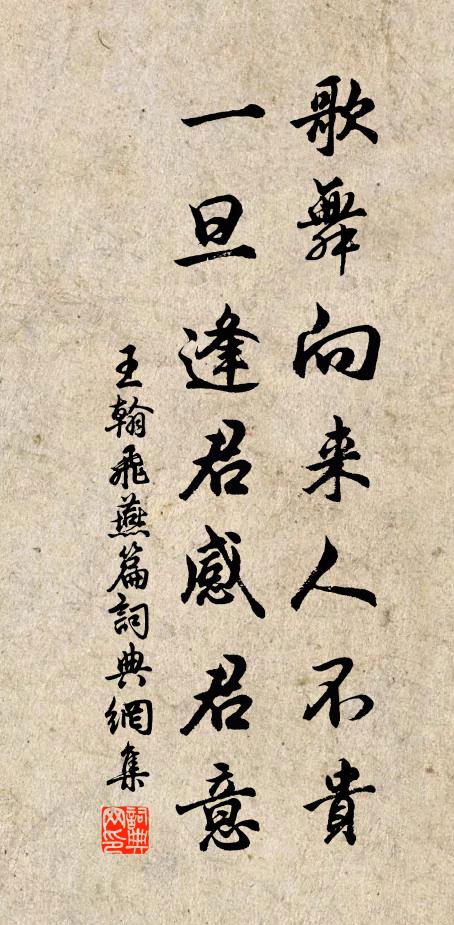 歌舞向来人不貴
一旦逢君感君意
王翰飛燕篇詞典網集
詞典网印